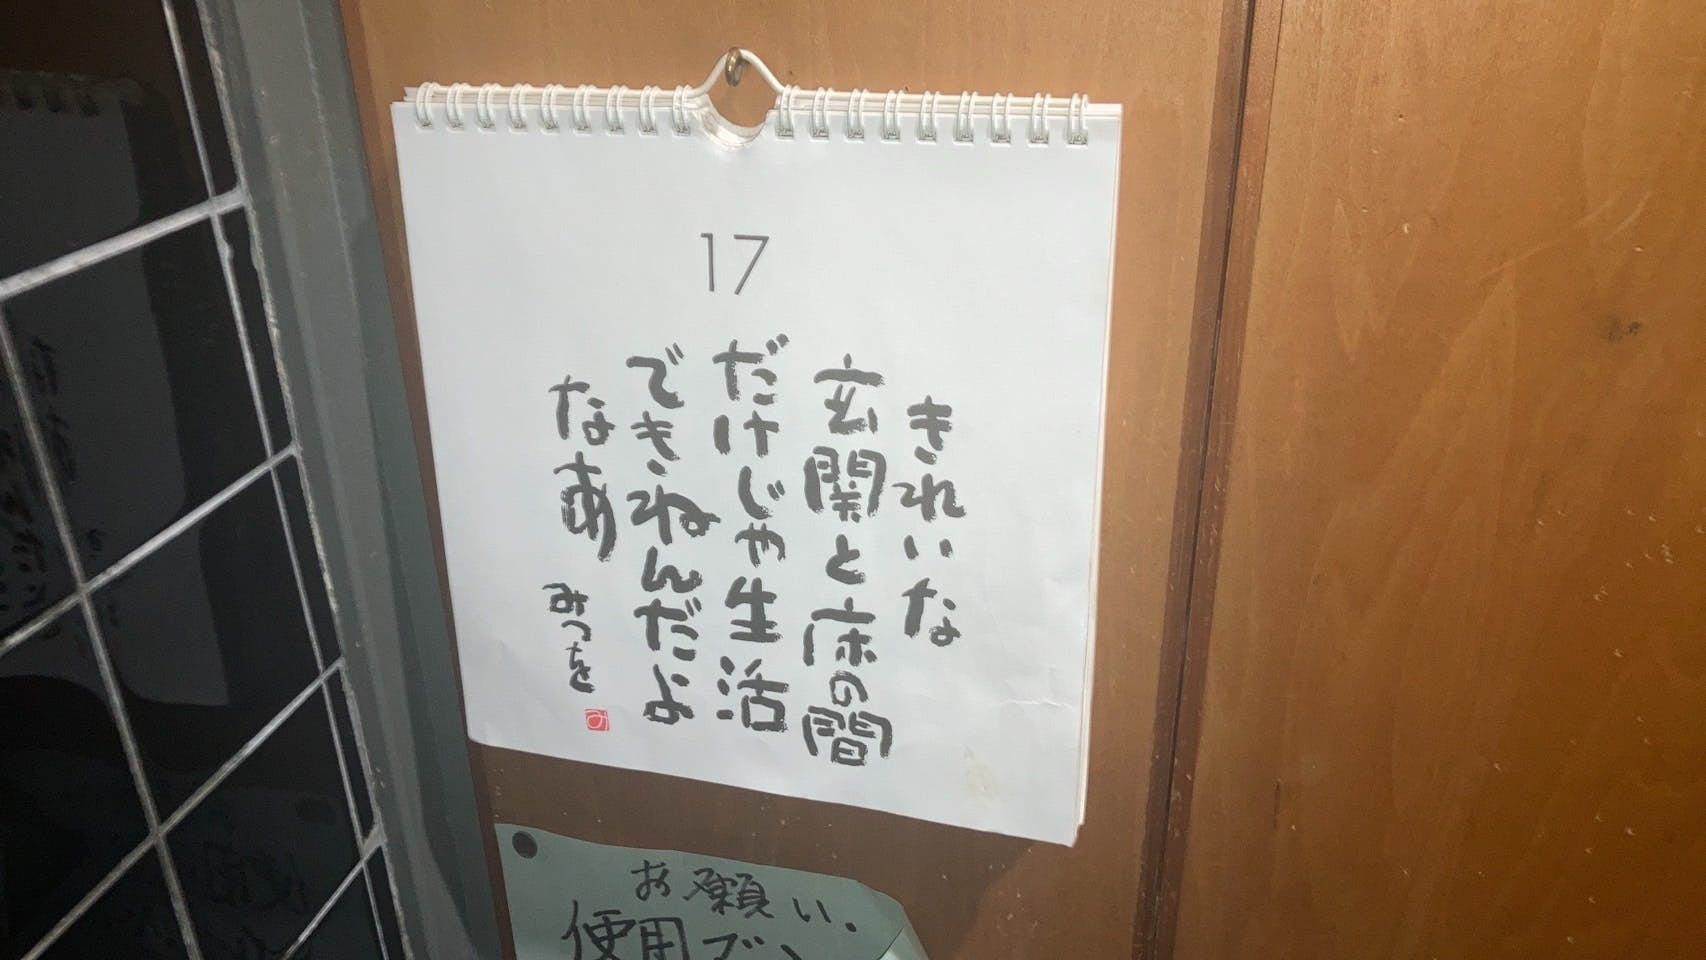 17
きれいな
玄関と床の間
だけじゃ生活
できねんだよ
なあ
みつを
お願い.
使用